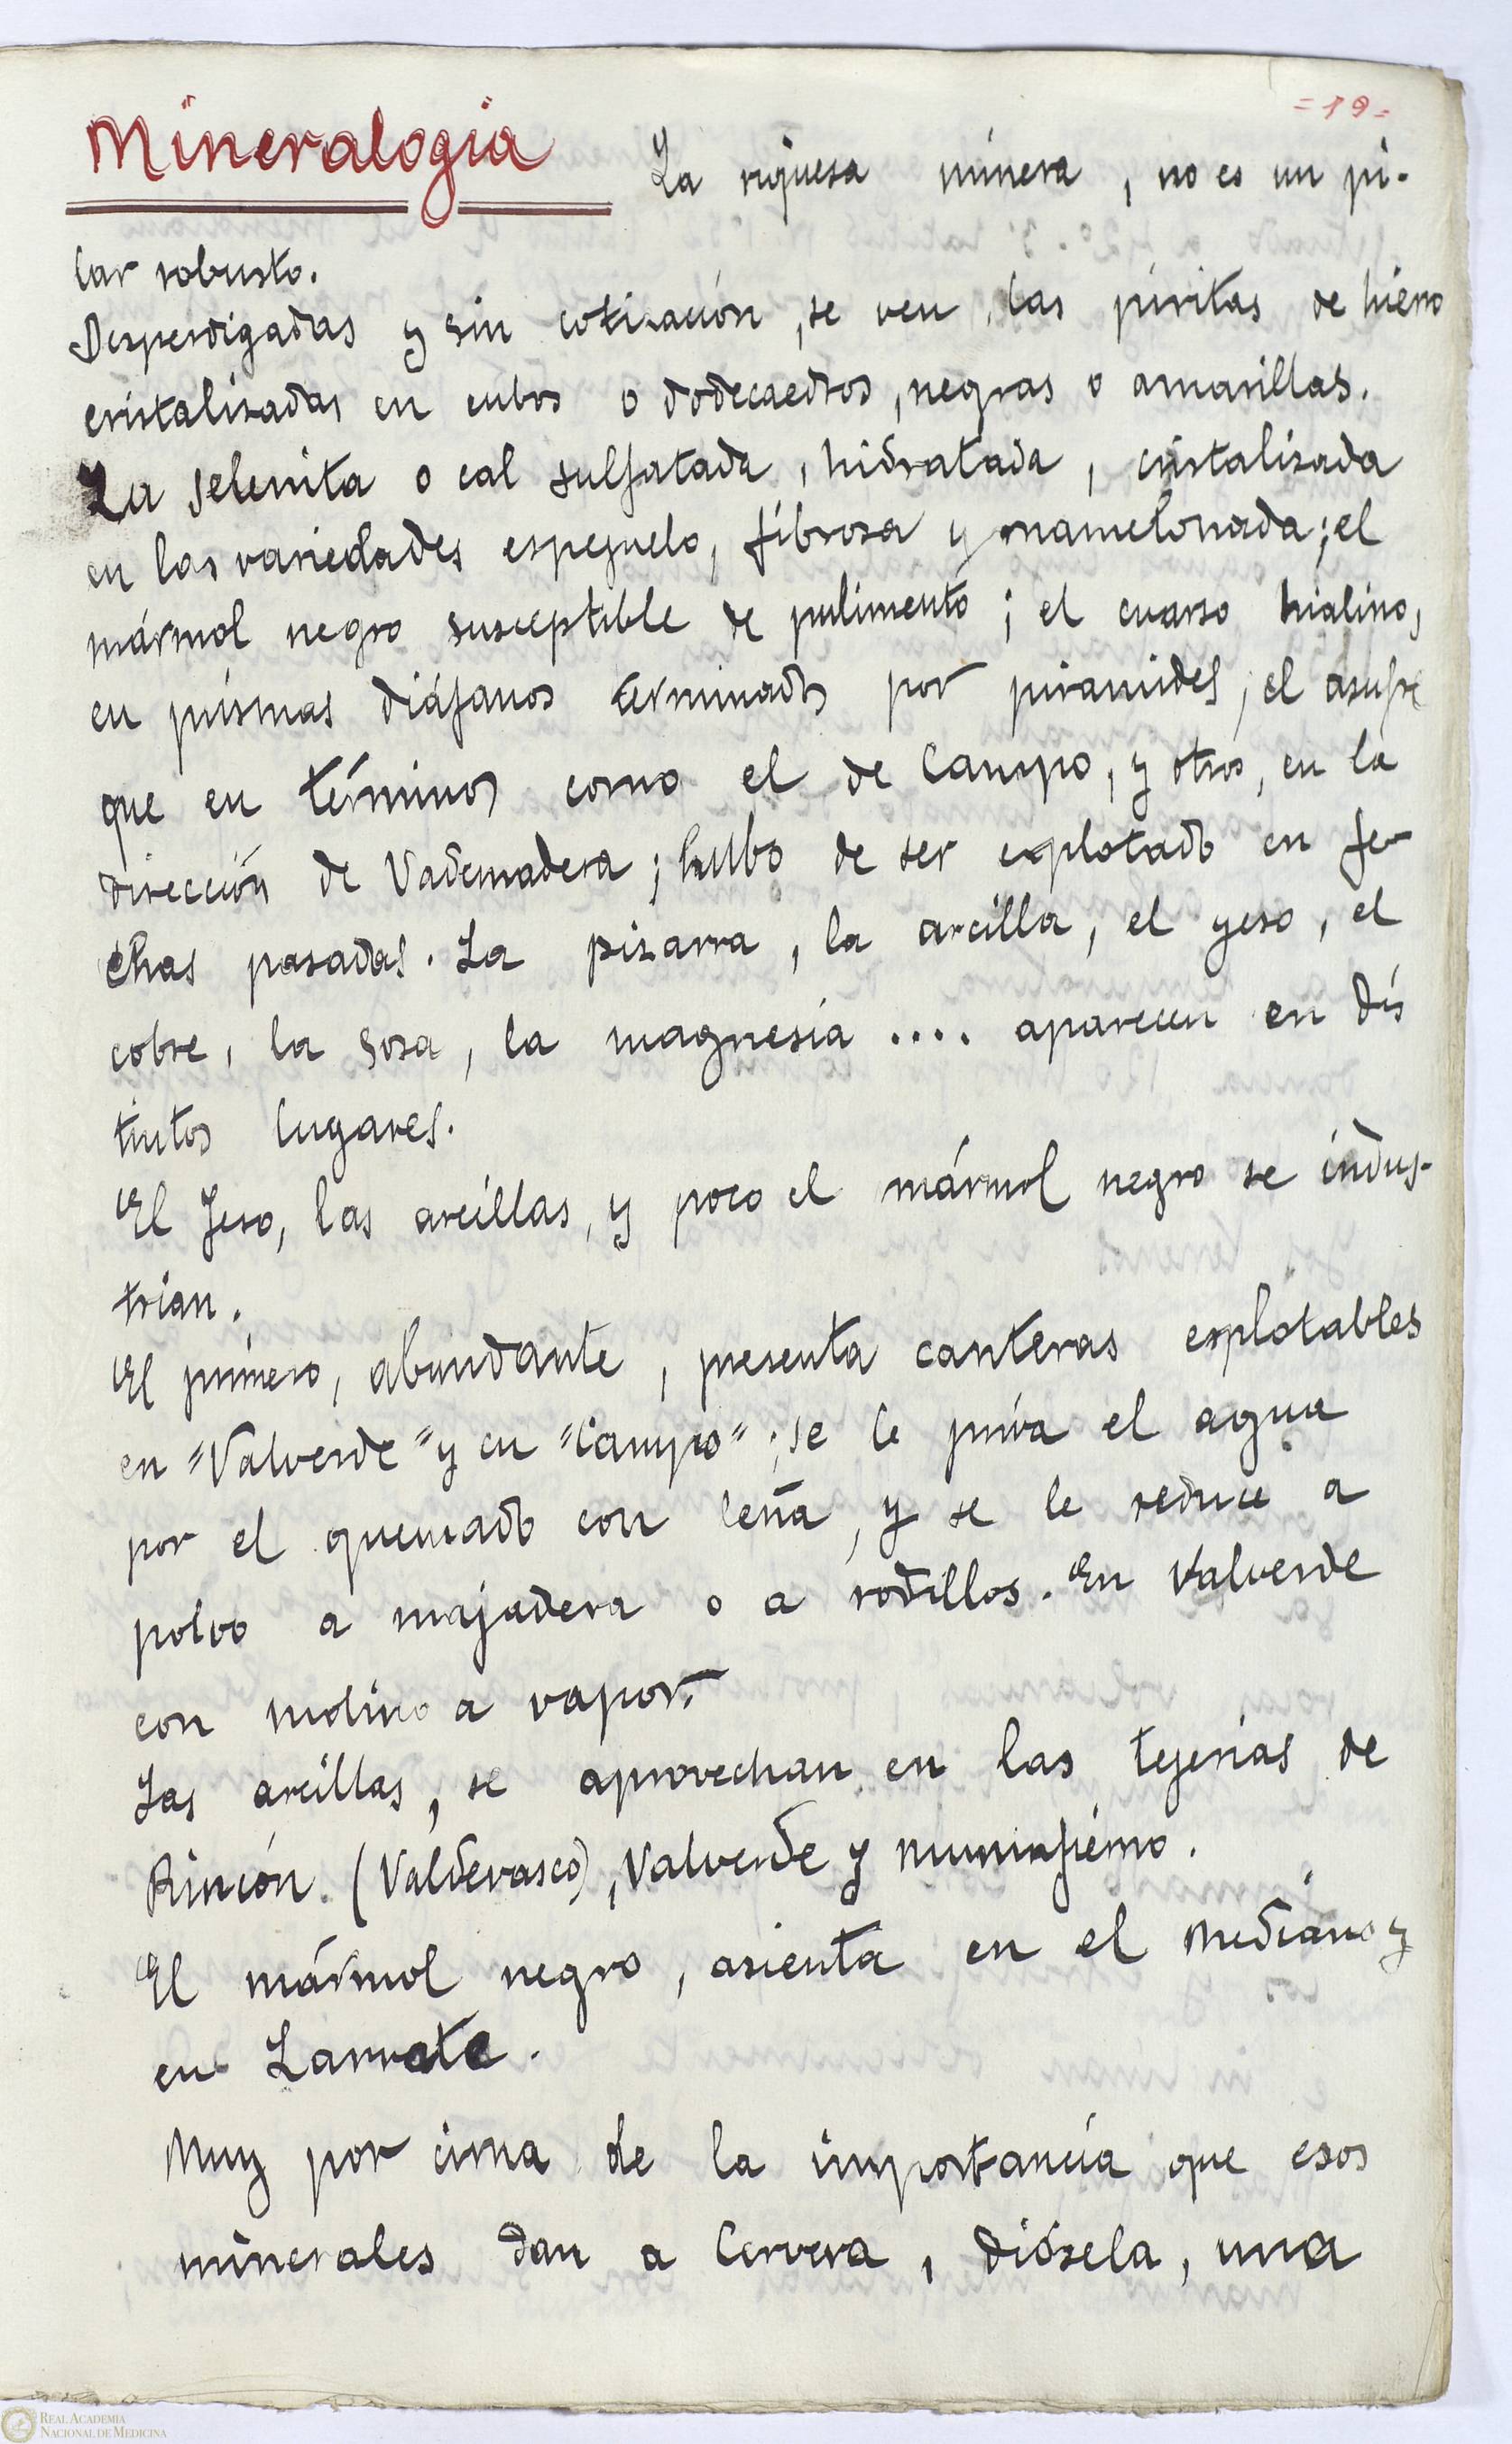 =19=
Mineralogia La riquesa minera, no es un pi-
lar robusto.
Desperdigadas y sin cotización, se ven las piritas de hierro
cristalizadas en cubos o dodecaedros, negras o amarillas.
La selenita o cal sulfatada, hidratada, cristalizada
en las variedades espejuelo, fibrosa y mamelonada; el
mármol negro susceptible de pulimento; el cuarso hialino,
en prismas diáfanos terminados por piramides; el asufre
que en términos como el de Campo, y otros, en la
dirección de Vademadera; hubo de ser explotado en fe-
chas pasadas. La pizarra, la arcilla, el yeso, el
cobre, la sosa, la magnesia .... aparecen en dis
tintos lugares.
El Yeso, las arcillas, y poco el mármol negro se indus-
trian.
El primero, abundante, presenta canteras explotables
en "Valverde" y en "Campo"; se le priva el agua
por el quemado con leña, y se le reduce a
polvo a majadera o a rodillos. En Valverde
con molino a vapor.
Las arcillas, se aprovechan en las tejerias de
Rincón (Valdevasco), Valverde y muniafierro.
El mármol negro, asienta en el Mediano y
en Larrate.
Muy por cima de la importancia que esos
minerales dan a Cervera, diósela, una
REAL ACADEMIA
NACIONAL DE MEDICINA